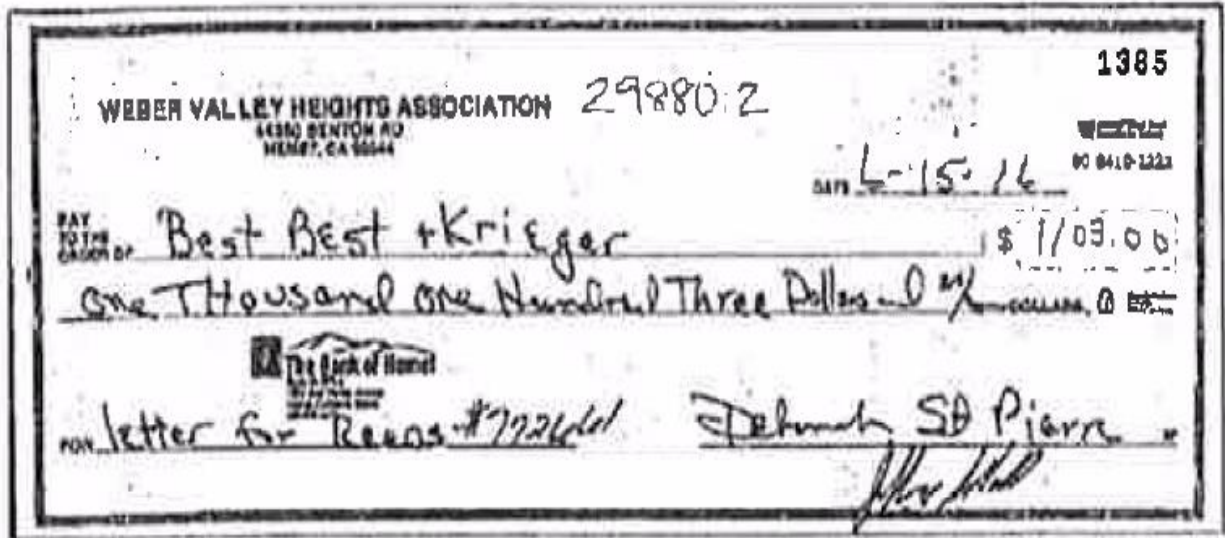 1385
WEBER VALLEY HEIGHTS ASSOCIATION 29880.2
44350 BENTON RD
HEMET, CA 92544
90-8410-1222
DATE 6-15-16
PAY TO THE ORDER OF Best BEst + KriEger $ 1103.00
one THousand one Hundred Three Dollars
The Bank of Hemet
FOR letter for Reeps